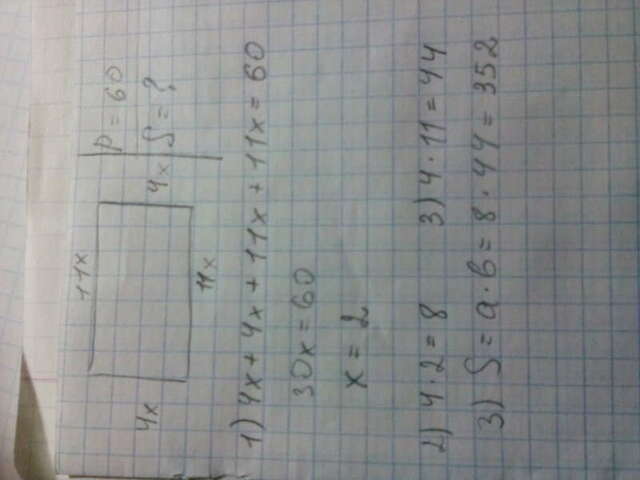 11x
P = 60
S = ?
4x
4x
11x
1) 4x + 4x + 11x + 11x = 60
30x = 60
x = 2
2) 4 · 2 = 8 3) 4 · 11 = 44
3) S = a · b = 8 · 44 = 352